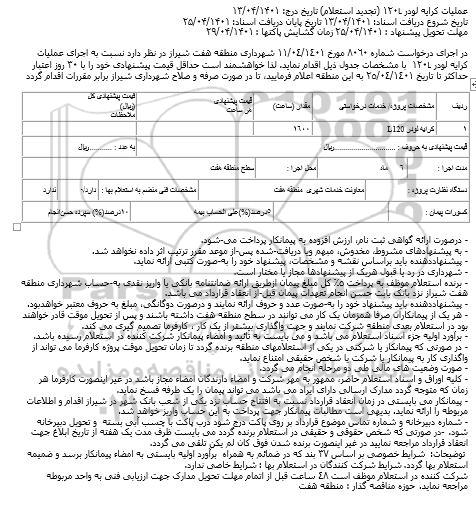 عملیات کرایه لودر ۱۲۰L (تجدید استعلام) تاریخ درج: ۱۳/۰۴/۱۴۰۱
تاریخ شروع دریافت اسناد: ۱۳/۰۴/۱۴۰۱ تاریخ پایان دریافت اسناد: ۲۵/۰۴/۱۴۰۱
مهلت تحویل پیشنهاد : ۲۵/۰۴/۱۴۰۱ زمان گشایش پاکتها : ۲۹/۰۴/۱۴۰۱
در اجرای درخواست شماره ۸۰۶۰ مورخ ۱۱/۰۴/۱٤۰۱ شهرداری منطقه هفت شیراز در نظر دارد نسبت به اجرای عملیات
کرایه لودر ۱۲۰L با مشخصات جدول ذیل اقدام نماید، لذا خواهشمند است حداقل قیمت پیشنهادی خود را با ۳۰ روز اعتبار
حداکثر تا تاریخ ۲۵/۰٤/۱٤۰۱ به این منطقه اعلام فرمایید، تا در صورت صرفه و صلاح شهرداری شیراز برابر مقررات اقدام گردد
ردیف مشخصات پروژه/ خدمات درخواستی مقدار (ساعت) قیمت پیشنهادی هر ساعت قیمت پیشنهادی کل (ریال) ملاحظات
۱ کرایه لودر L120 ۱٦۰۰
قیمت پیشنهادی به حروف : ...............ریال به عدد : ............ریال
مدت اجرا : ٦ ماه محل اجرا : سطح منطقه هفت
دستگاه نظارت پروژه : معاونت خدمات شهری منطقه هفت مشخصات فنی منضم به استعلام بها : دارد/۰ ندارد
کسورات پیمان : ۵درصد(%)علی الحساب بیمه ۱۰درصد(%) سپرده حسن‌انجام
- درصورت ارائه گواهی ثبت نام، ارزش افزوده به پیمانکار پرداخت می‌شود.
- به پیشنهادهای مشروط، مخدوش، مبهم ویا دریافت‌شده پس‌از موعد مقرر ترتیب اثر داده نخواهد شد.
- پیشنهاددهنده باید براساس نقشه و مشخصات، پیشنهاد خود را به‌صورت کتبی ارائه نماید.
- شهرداری در رد یا قبول هریک از پیشنهادها مجاز یا مختار است.
- برنده استعلام موظف به پرداخت ۵٪ کل مبلغ پیمان ازطریق ارائه ضمانتنامه بانکی یا واریز نقدی به‌حساب شهرداری منطقه
هفت شیراز نزد بانک بابت حسن انجام تعهدات پیمان قبل‌از انعقاد قرارداد می باشد.
- پیشنهاددهنده باید پیشنهاد خود را به‌صورت عدد و حروف ارائه نمایند و درصورت دوگانگی، مبلغ به حروف معتبر خواهدبود.
- هر یک از پیمانکاران صرفا همزمان یک کار می توانند در سطح منطقه هفت داشته باشند و پس از تحویل موقت قادر خواهند
بود در استعلام بعدی منطقه شرکت نمایند و جهت واگذاری بیشتر از یک کار ، کارفرما تصمیم گیری می کند.
- برآورد اولیه جزء اسناد استعلام می باشد و می بایست به تائید و امضاء پیمانکار شرکت کننده در استعلام رسیده باشد.
- در صورتی که پیمانکار یا شرکتی در یکی از استعلامهای منطقه برنده گردد تا زمان تحویل موقت پروژه کارفرما می تواند از
واگذاری کار به پیمانکار یا شرکت یا شخص حقیقی امتناع نماید.
- صورت وضعیت های مالی طی دو مرحله انجام می گردد.
- کلیه اوراق و اسناد استعلام حاضر، ممهور به مهر شرکت و امضاء دارندگان امضاء مجاز باشد در غیر اینصورت کارفرما هر
زمان که متوجه گردد مدارک ارسالی دارای ایراد می باشد می تواند پیمان را یک طرفه فسخ نماید.
- پیمانکار می بایستی در زمان انعقاد قرارداد نسبت به افتتاح حساب نزد یکی از شعب بانک شهر در شیراز اقدام و اطلاعات
مربوطه را ارائه نماید، بدیهی است مطالبات پیمانکار جهت پرداخت به این حساب واریز خواهد شد.
- شماره دبیرخانه و شماره تماس موضوع قرارداد بر روی پاکت درج شود درب پاکت با چسب آبی بسته و تحویل دبیرخانه
شود. -در صورتی که شخص حقوقی و حقیقی در استعلام برنده گردد می بایست ظرف مدت یک هفته از تاریخ ابلاغ جهت
انعقاد قرارداد مراجعه نمایید در غیر اینصورت برنده شدن فوق کان لم یکن تلقی می گردد.
توضیحات: شرایط خصوصی بر اساس ۳۷ بند که در ضمائم به همراه برآورد اولیه بایستی به امضاء پیمانکار برسد و ضمیمه
استعلام بها گردد. شرایط شرکت کنندگان در استعلام بها : شرایط خاصی ندارد.
شرکت کننده در استعلام موظف است ٤۸ ساعت قبل از اتمام مهلت تحویل مدارک جهت ارزیابی فنی به واحد مربوطه
مراجعه نماید. حوزه مناقصه گذار : منطقه هفت